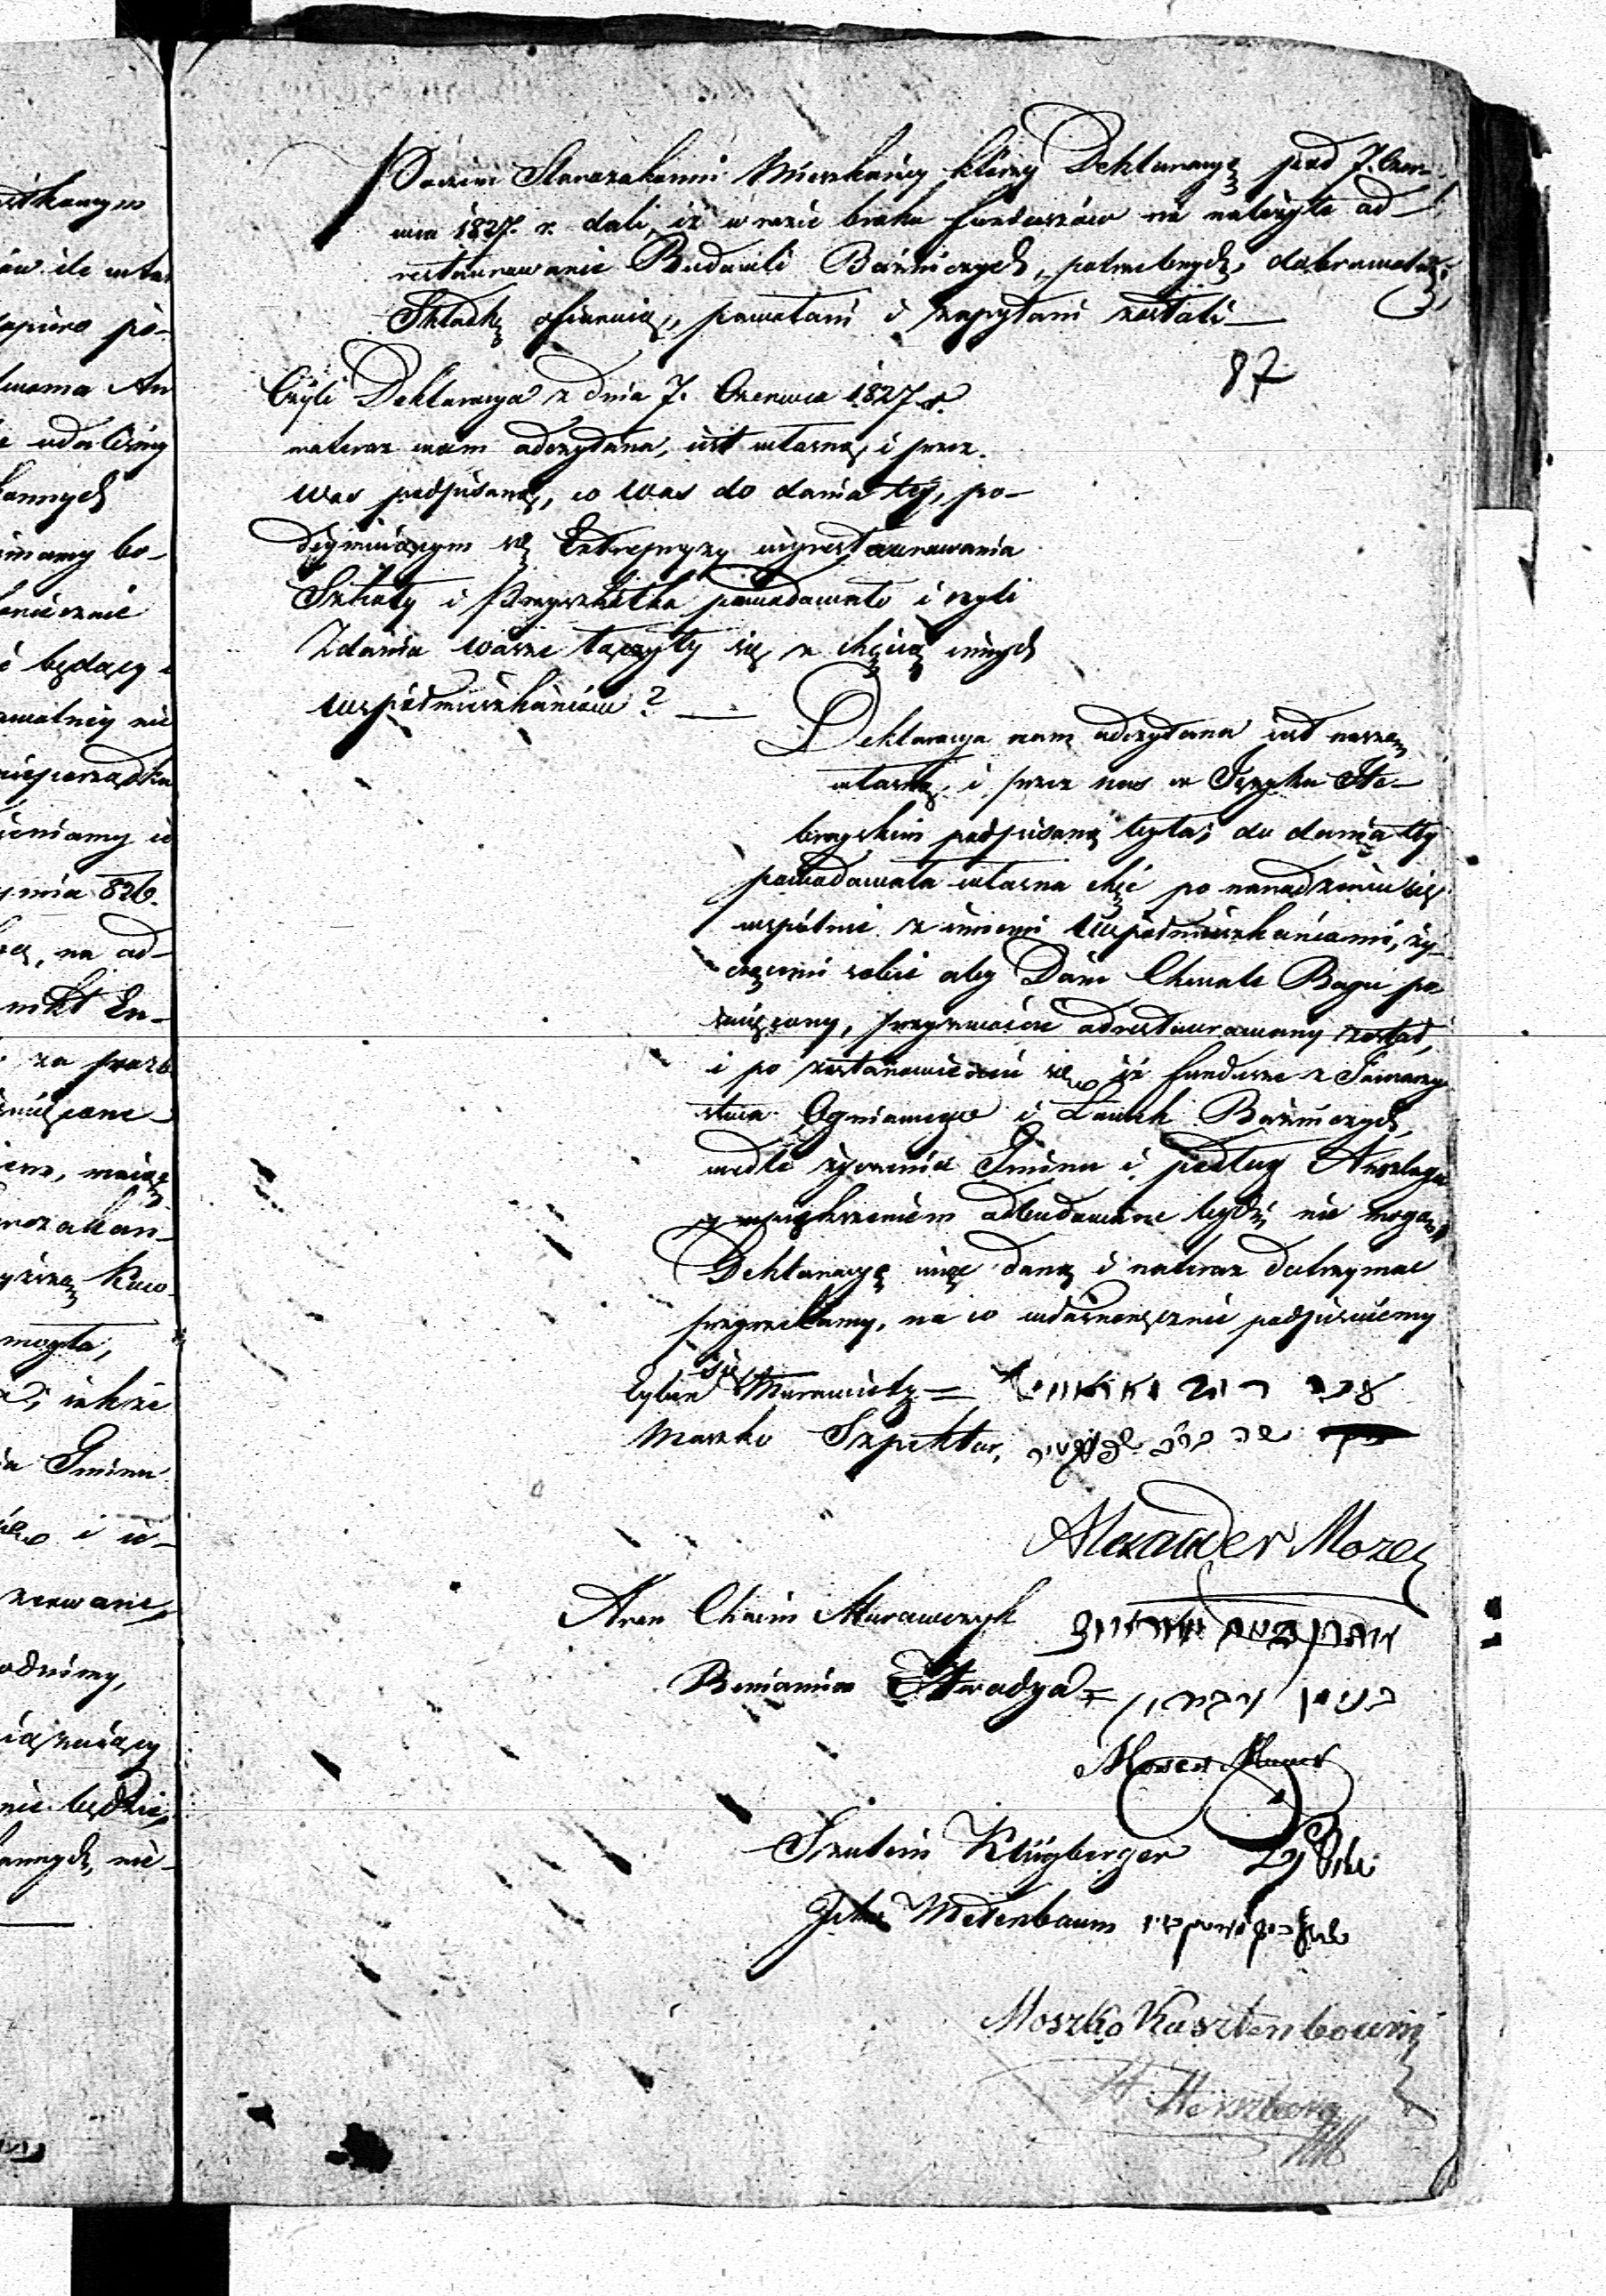 Starozakonni Mieszkańcy którzy Deklaracyę pod 7. Czer-
wca 1827. r. dali, iż w razie braku funduszów na należyte od-
restaurowanie Budowli Bożniczych, potrzebnych, dobrowolną
Składkę ofiarują, powołani i zapytani zostali —
87
Czyli Deklaracya z dnia 7. Czerwca 1827 r.
nateraz wam odczytana, iest własną i przez
was podpisaną, co was do dania tey, po-
deymuiącym się Entrepryzy wyrestaurowania
Szkoły i Przyszkółka powodowało i czyli
Zdania wasze łączyły się z chęcią innych
współmieszkańców? —
Deklaracya nam odczytana iest naszą
własną i przez nas w Ięzyku He-
brayskim podpisaną była; do dania tey
powodowała własna chęć po naradzeniu się
wspólnie z innemi Współmieszkańcami, ży-
czącemi sobie aby Dom Chwale Boga po-
święcony, przyzwoicie odrestaurowany został,
i po zastanowieniu się iż fundusze z Towarzy-
stwa Ogniowego i Ławek Bożniczych,
wedle życzenia Gminu i podług Anszlagu
z upiększeniem odbudowane bydź nie mogą,
Deklaracyę więc daną i nateraz dotrzymać
przyrzekamy, na co własnoręcznie podpisuiemy
się
Murawiecky =
Moszko Szpektor,
Alexander Mozes
Aron Chaim Murawczyk
Beniamin
בנימן
Moses
Klüngberger
Metenbaum
Moszko Kasztenbaum
H. Herszberg